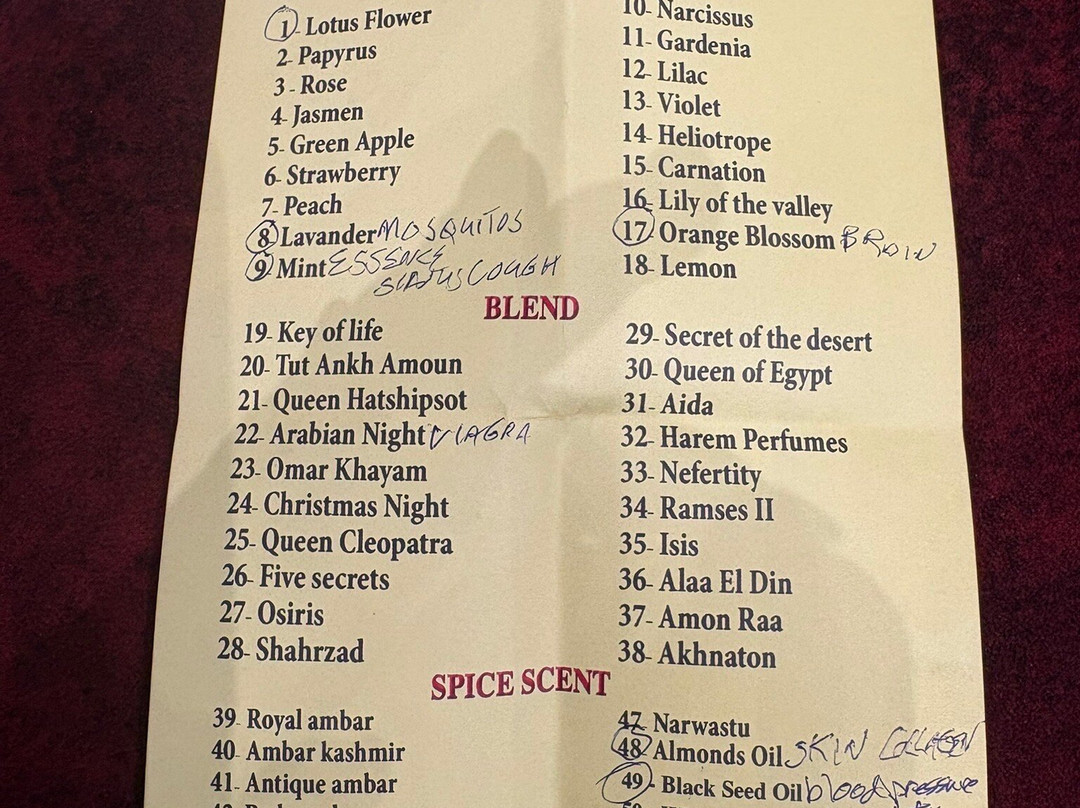 1- Lotus Flower
2- Papyrus
3- Rose
4- Jasmen
5- Green Apple
6- Strawberry
7- Peach
8- Lavander MOSQUITOS
9- Mint ESSENCE
COUGH
10- Narcissus
11- Gardenia
12- Lilac
13- Violet
14- Heliotrope
15- Carnation
16- Lily of the valley
17- Orange Blossom BRAIN
18- Lemon
BLEND
19- Key of life
20- Tut Ankh Amoun
21- Queen Hatshipsot
22- Arabian Night VIAGRA
23- Omar Khayam
24- Christmas Night
25- Queen Cleopatra
26- Five secrets
27- Osiris
28- Shahrzad
29- Secret of the desert
30- Queen of Egypt
31- Aida
32- Harem Perfumes
33- Nefertity
34- Ramses II
35- Isis
36- Alaa El Din
37- Amon Raa
38- Akhnaton
SPICE SCENT
39- Royal ambar
40- Ambar kashmir
41- Antique ambar
47- Narwastu
48- Almonds Oil SKIN COLLAGEN
49- Black Seed Oil blood pressure